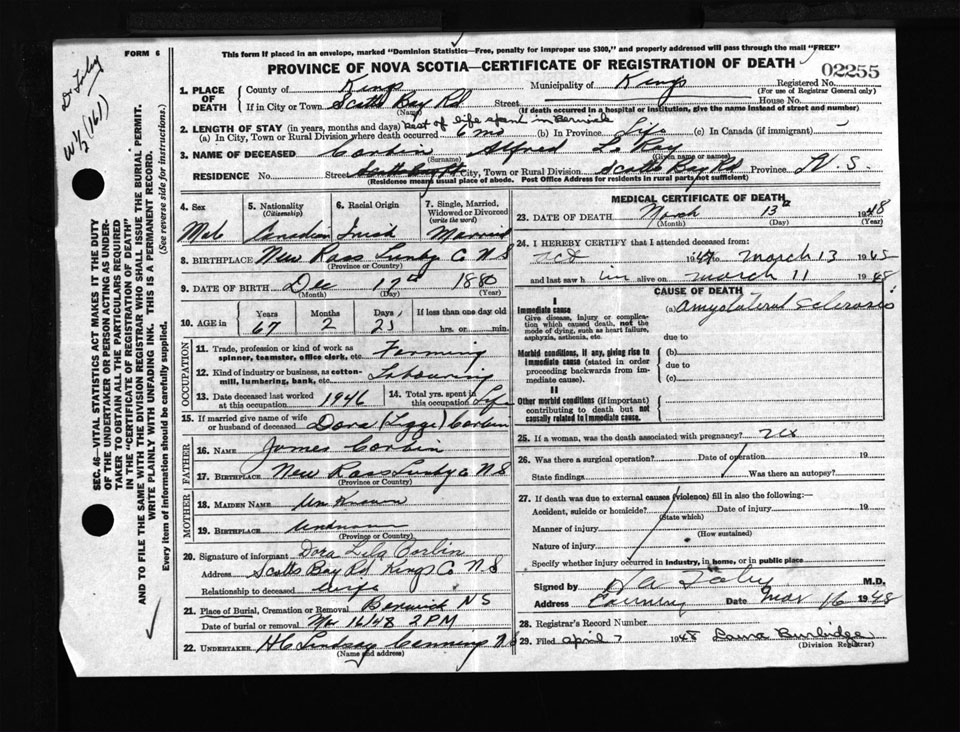 FORM 6
This form if placed in an envelope, marked "Dominion Statistics—Free, penalty for improper use $300," and properly addressed will pass through the mail "FREE"
PROVINCE OF NOVA SCOTIA—CERTIFICATE OF REGISTRATION OF DEATH
02255
1. PLACE OF DEATH
County of Kings Municipality of Kings Registered No.
(For use of Registrar General only)
If in City or Town Scotts Bay Rd Street House No.
(Name) (If death occurred in a hospital or institution, give the name instead of street and number)
2. LENGTH OF STAY (in years, months and days) Rest of life spent in Berwick
(a) In City, Town or Rural Division where death occurred 6 mo (b) In Province Life (c) In Canada (if immigrant)
3. NAME OF DECEASED Corbin Alfred Le Roy
(Surname) (Given name or names)
RESIDENCE No. Street City, Town or Rural Division Scotts Bay Rd Province N. S.
(Residence means usual place of abode. Post Office Address for residents in rural parts not sufficient)
4. Sex
Male
5. Nationality
(Citizenship)
Canadian
6. Racial Origin
Irish
7. Single, Married, Widowed or Divorced
(write the word)
Married
8. BIRTHPLACE New Ross Lunbg Co NS
(Province or Country)
9. DATE OF BIRTH Dec 17th 1880
(Month) (Day) (Year)
10. AGE in Years Months Days If less than one day old
67 2 25 hrs. or min.
OCCUPATION
11. Trade, profession or kind of work as spinner, teamster, office clerk, etc. Farming
12. Kind of industry or business, as cotton-mill, lumbering, bank, etc. Labouring
13. Date deceased last worked at this occupation 1946
14. Total yrs. spent in this occupation Life
15. If married give name of wife or husband of deceased Dora Corbin
FATHER
16. NAME James Corbin
17. BIRTHPLACE New Ross Lunbg Co N.S
(Province or Country)
MOTHER
18. MAIDEN NAME Unknown
19. BIRTHPLACE Unknown
(Province or Country)
20. Signature of informant Dora Lela Corbin
Address Scotts Bay Rd Kings Co N S
Relationship to deceased Wife
21. Place of Burial, Cremation or Removal Berwick NS
Date of burial or removal Mar 16/48 2 PM
22. UNDERTAKER HC Lindsay Canning N.S
(Name and address)
MEDICAL CERTIFICATE OF DEATH
23. DATE OF DEATH March 13th 1948
(Month) (Day) (Year)
24. I HEREBY CERTIFY that I attended deceased from:
Oct 1947 to March 13 1948
and last saw h im alive on March 11 1948
CAUSE OF DEATH
I
Immediate cause
Give disease, injury or complication which caused death, not the mode of dying, such as heart failure, asphyxia, asthenia, etc.
(a) Amyolateral Sclerosis
due to
Morbid conditions, if any, giving rise to immediate cause (stated in order proceeding backwards from immediate cause).
(b)
due to
(c)
II
Other morbid conditions (if important) contributing to death but not causally related to immediate cause.
25. If a woman, was the death associated with pregnancy?
26. Was there a surgical operation? Date of operation 19
State findings Was there an autopsy?
27. If death was due to external causes (violence) fill in also the following:—
Accident, suicide or homicide? Date of injury 19
(State which)
Manner of injury
(How sustained)
Nature of injury
Specify whether injury occurred in industry, in home, or in public place
Signed by M.D.
Address Canning Date Mar 16 1948
28. Registrar's Record Number
29. Filed April 7 1948 Laura Burbidge
(Division Registrar)
W 1/2 (161)
SEC. 46—VITAL STATISTICS ACT MAKES IT THE DUTY
OF THE UNDERTAKER OR PERSON ACTING AS UNDER-
TAKER TO OBTAIN ALL THE PARTICULARS REQUIRED
IN THE "CERTIFICATE OF REGISTRATION OF DEATH"
AND TO FILE THE SAME WITH THE DIVISION REGISTRAR WHO SHALL ISSUE THE BURIAL PERMIT.
WRITE PLAINLY WITH UNFADING INK. THIS IS A PERMANENT RECORD.
Every item of information should be carefully supplied. (See reverse side for instructions.)